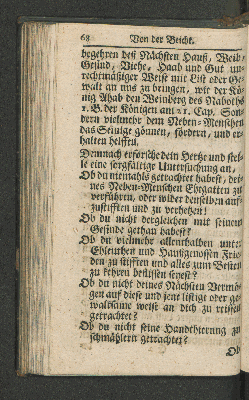 68 Von der Beicht.
begehren deß Nächsten Hauß, Weib,
Gesind, Viehe, Haab und Gut un-
rechtmäßiger Weise mit List oder Ge-
walt an uns zu bringen, wie der Kö-
nig Ahab den Weinberg des Naboths
1. B. der Königen am 21. Cap. Son-
dern vielmehr dem Neben-Menschen
das Seinige gönnen, fördern, und er-
halten helffen.
Demnach erforsche dein Hertze und stel-
le eine sorgfältige Untersuchung an,
Ob du niemahls getrachtet habest, dei-
nes Neben-Menschen Ehegatten zu
verführen, oder wider denselben auf-
zustifften und zu verhetzen!
Ob du nicht dergleichen mit seinem
Gesinde gethan habest?
Ob du vielmehr allenthalben unter
Eheleuthen und Haußgenossen Frie-
den zu stifften und alles zum Besten
zu kehren beflissen seyest?
Ob du nicht deines Nächsten Vermö-
gen auf diese und jene listige oder ge-
waltsame weise an dich zu reissen
getrachtet?
Ob du nicht seine Handthierung zu
schmählern getrachtet?
Ob